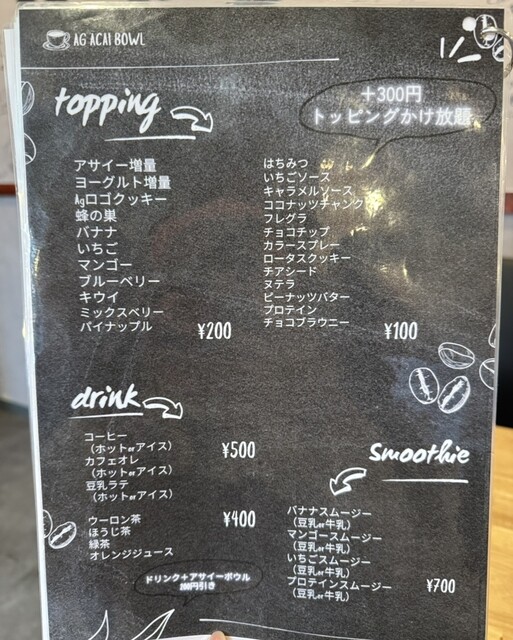 AG ACAI BOWL
topping
+300円
トッピングかけ放題
アサイー増量
ヨーグルト増量
Agロゴクッキー
蜂の巣
バナナ
いちご
マンゴー
ブルーベリー
キウイ
ミックスベリー
パイナップル
¥200
はちみつ
いちごソース
キャラメルソース
ココナッツチャンク
フレグラ
チョコチップ
カラースプレー
ロータスクッキー
チアシード
ヌテラ
ピーナッツバター
プロテイン
チョコブラウニー
¥100
drink
コーヒー
(ホットorアイス)
カフェオレ
(ホットorアイス)
豆乳ラテ
(ホットorアイス)
¥500
ウーロン茶
ほうじ茶
緑茶
オレンジジュース
¥400
ドリンク+アサイーボウル
200円引き
smoothie
バナナスムージー
(豆乳or牛乳)
マンゴースムージー
(豆乳or牛乳)
いちごスムージー
(豆乳or牛乳)
プロテインスムージー
(豆乳or牛乳)
¥700